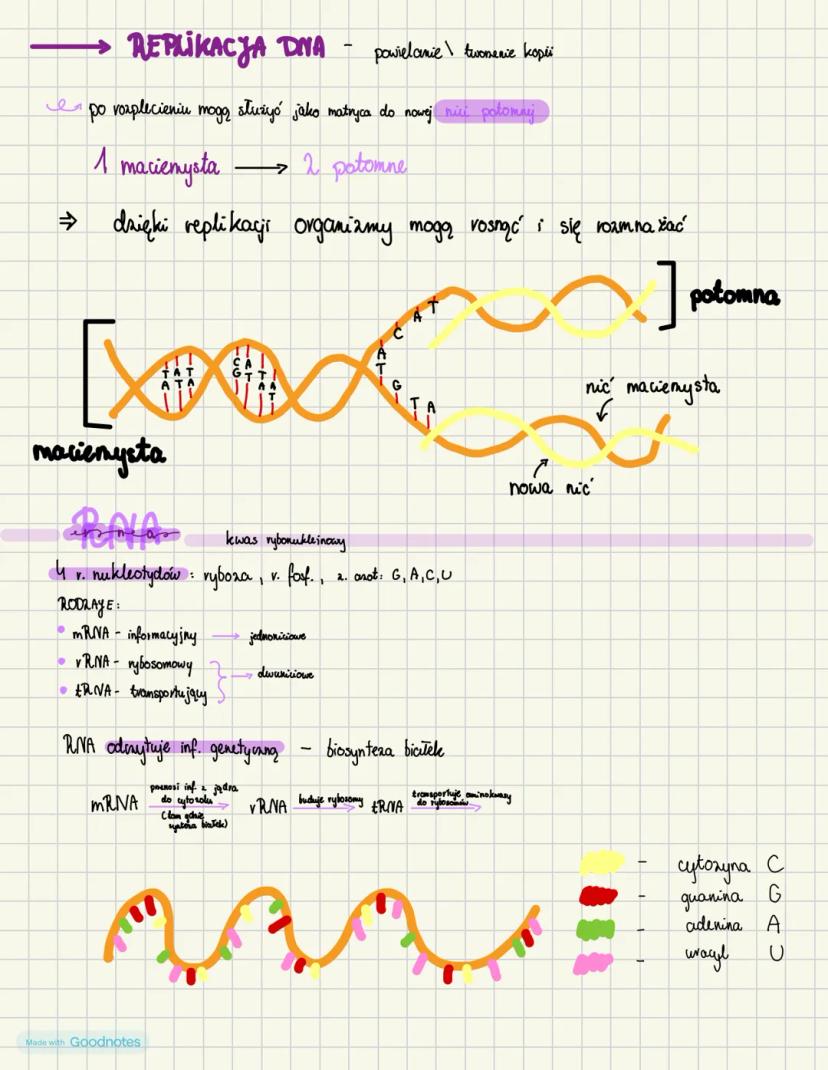 REPLIKACJA DNA - powielanie \ tworzenie kopii
po rozplecieniu mogą służyć jako matryca do nowej nici potomnej
1 macierzysta → 2 potomne
⇒ dzięki replikacji organizmy mogą rosnąć i się rozmnażać
potomna
T
A
C
A
T
G
T A
T A T
A T A
C A
G T T A
A T
nić macierzysta
macierzysta
nowa nić
RNA
kwas rybonukleinowy
4 r. nukleotydów: ryboza, r. fosf., z. azot: G, A, C, U
RODZAJE:
• mRNA - informacyjny → jednoniciowe
• rRNA - rybosomowy
→ dwuniciowe
• tRNA - transportujący
RNA odczytuje inf. genetyczną - biosynteza białek
przenosi inf. z jądra
do cytozolu
(tam gdzie
synteza białek)
mRNA → rRNA → tRNA →
buduje rybosomy
transportuje aminokwasy
do rybosomów
- cytozyna C
- guanina G
- adenina A
- uracyl U
Made with Goodnotes